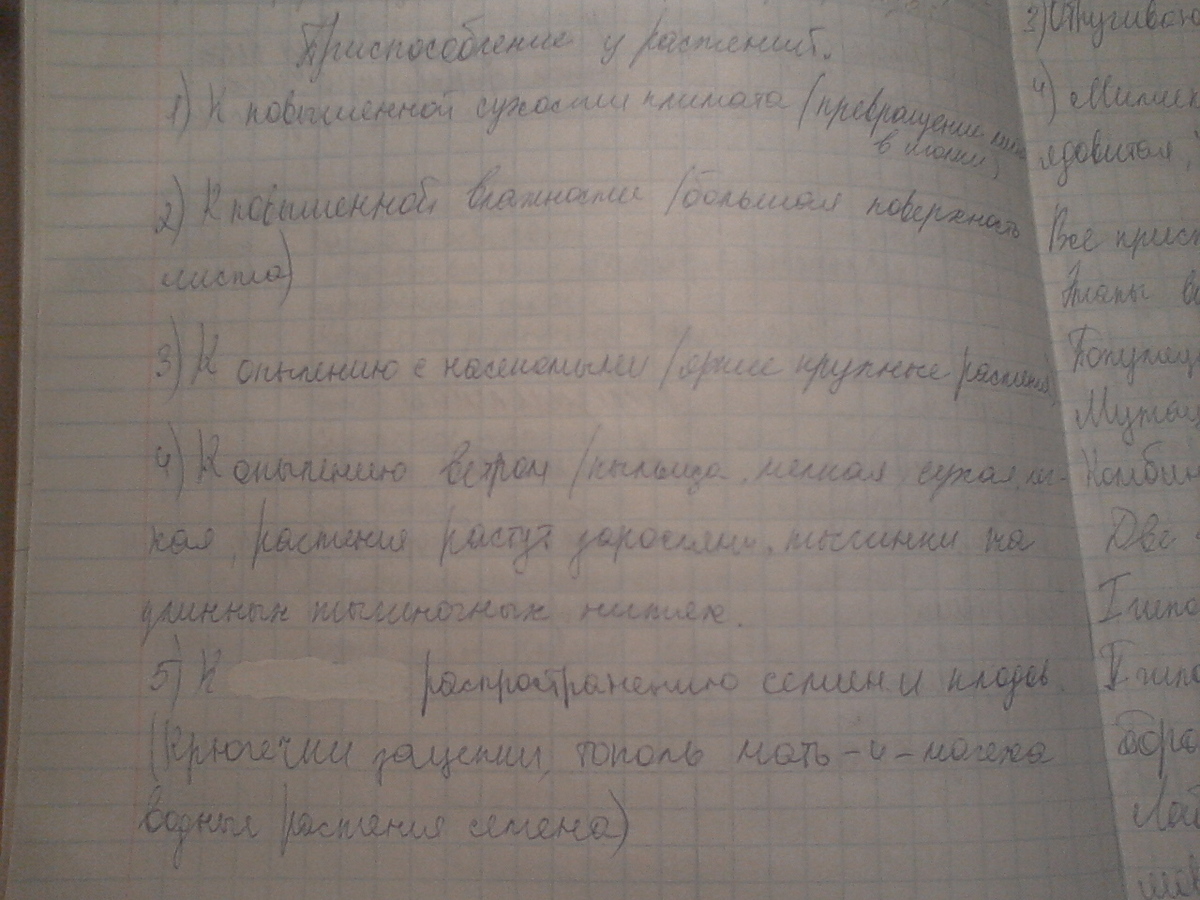 Приспособление у растений.
1) К повышенной сухости климата (превращение
в иголки,
2) К повышенной влажности (большая поверхность
листа)
3) К опылению с насекомыми (яркие крупные растения)
4) К опылению ветром (пыльца мелкая, сухая, лег-
кая, растения растут зарослями, тычинки на
длинных тычиночных нитях.
5) К распространению семян и плодов
(Крючечки зацепки, тополь мать-и-мачеха
водные растения семена)
3) Отпугиван
4) Мимик
ядовитая,
Все присп
Этапы
Популяц
Мутац
Комбин
Две
I гипо
II гипо